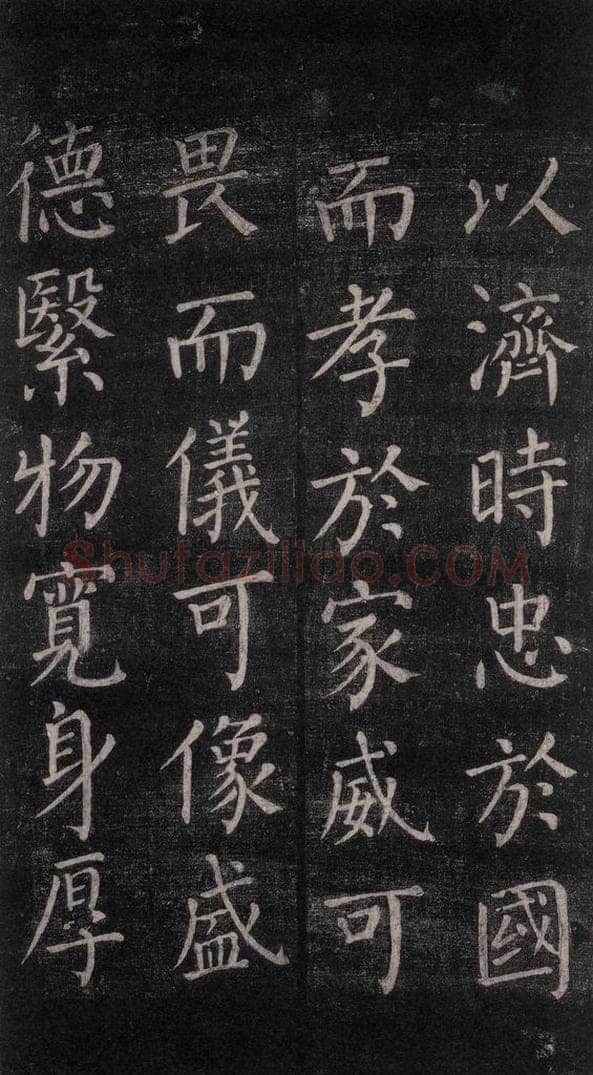 以濟時忠於國
而孝於家威可
畏而儀可像盛
德緊物寬身厚
Shufaziliao.COM